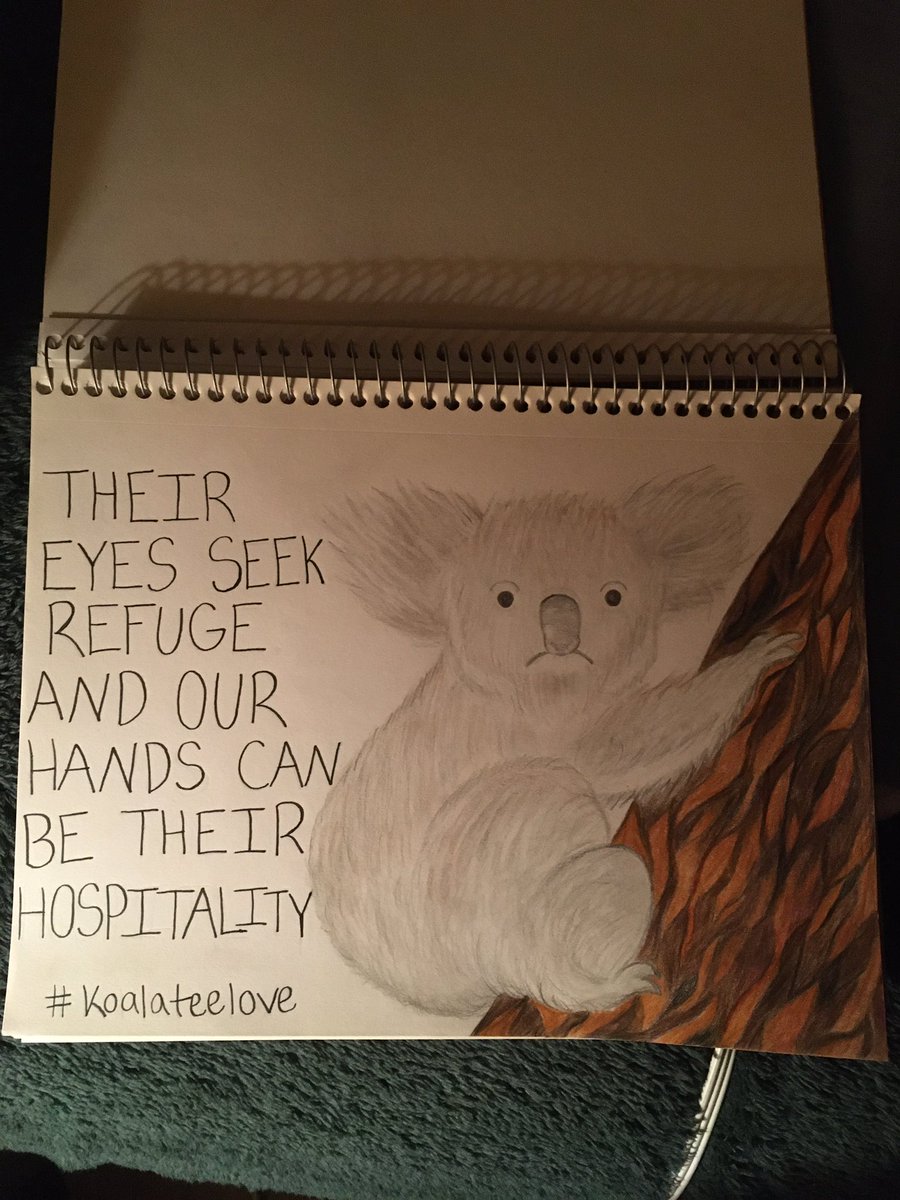 THEIR
EYES SEEK
REFUGE
AND OUR
HANDS CAN
BE THEIR
HOSPITALITY
#Koalateelove